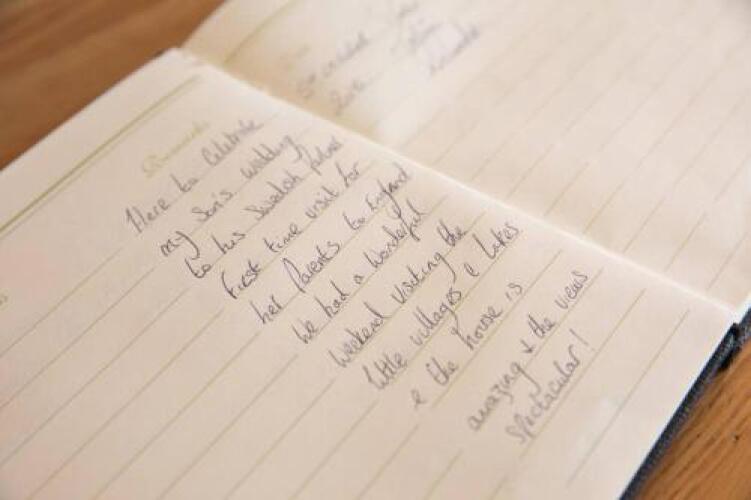 Remarks
Here to Celebrate
my Son's wedding
to his Swedish
First time visit for
her Parents to England
We had a wonderful
weekend visiting the
little villages & lakes
& the house is
amazing & the views
spectacular!